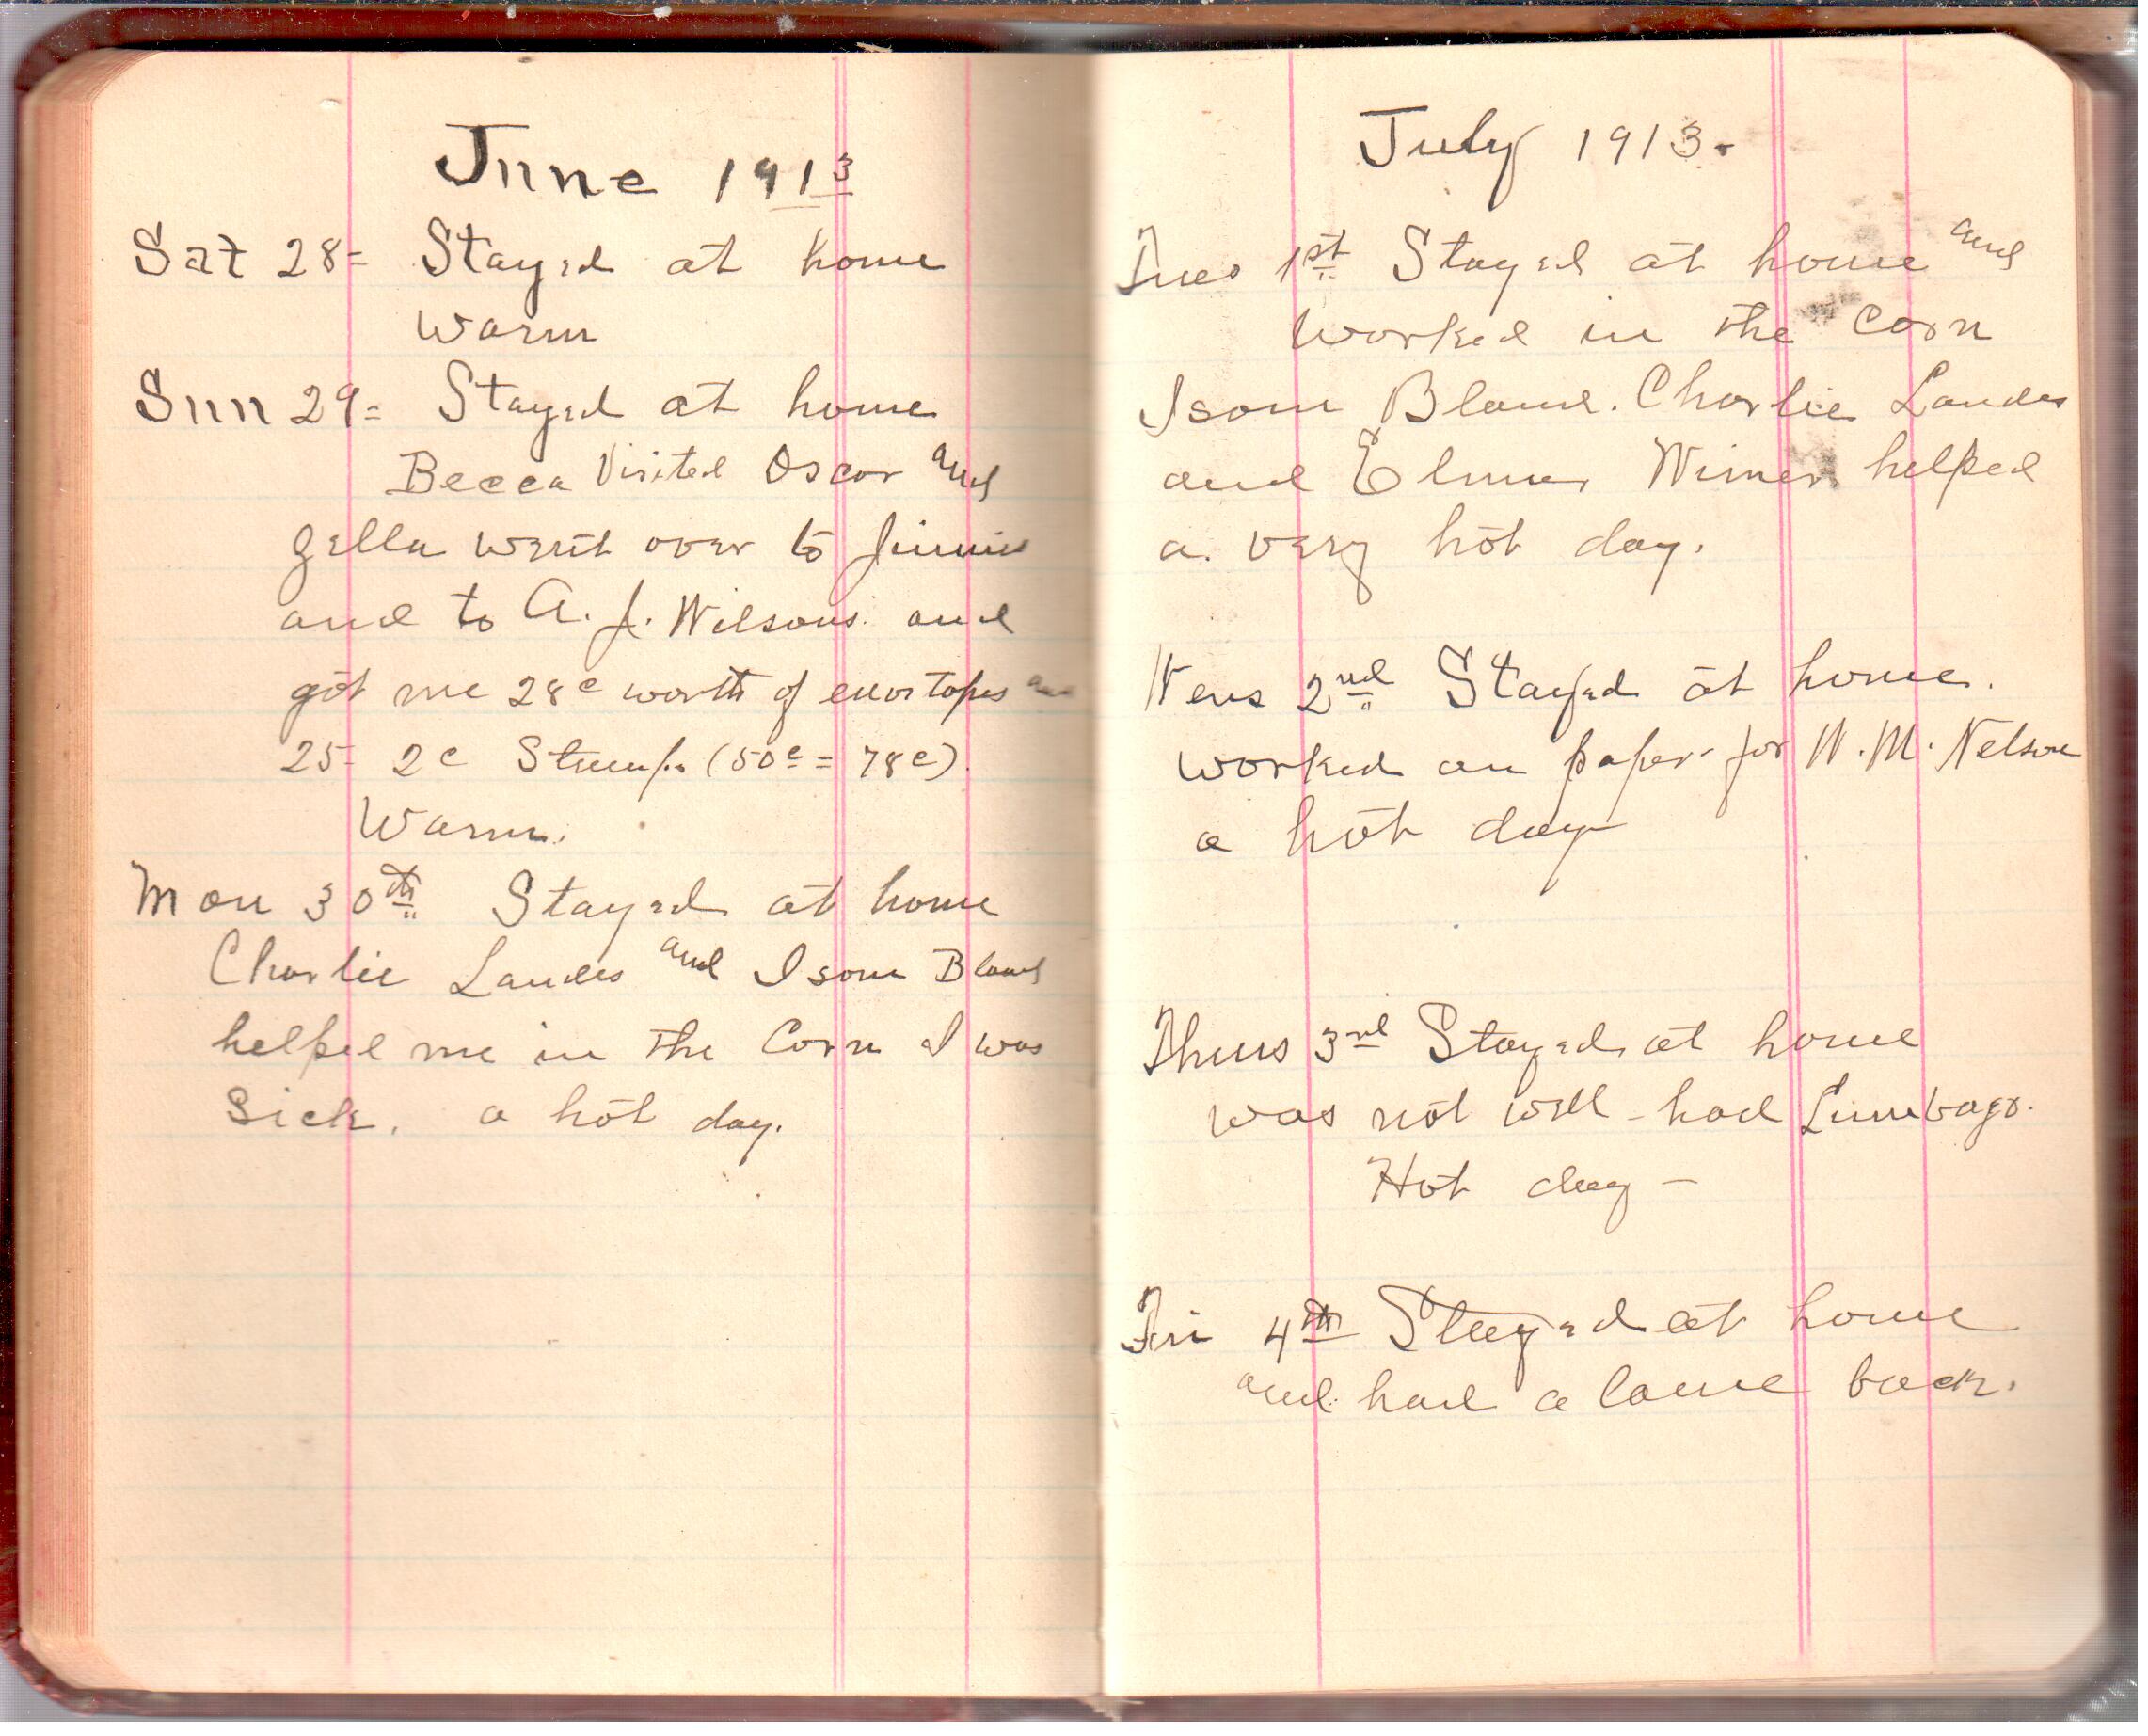 June 1913
Sat 28= Stayed at home
Warm
Sun 29= Stayed at home
Becca Visited Oscar and
Zella went over to Jimmies
and to A. J. Wilsons. and
got me 28c worth of envelopes and
25- 2c Stamps (50c = 78c).
Warm.
Mon 30th Stayed at home
Charlie Landes and Isom Bland
helped me in the Corn I was
Sick. a hot day.
July 1913.
Tues 1st Stayed at home and
worked in the Corn
Isom Bland. Charlie Landes
and Elmer Wimer helped
a. very hot day.
Wens 2nd Stayed at home.
worked on papers for W. M. Nelson
a hot day
Thurs 3rd Stayed at home
was not well - had Lumbago.
Hot day -
Fri 4th Stayed at home
and had a lame back.